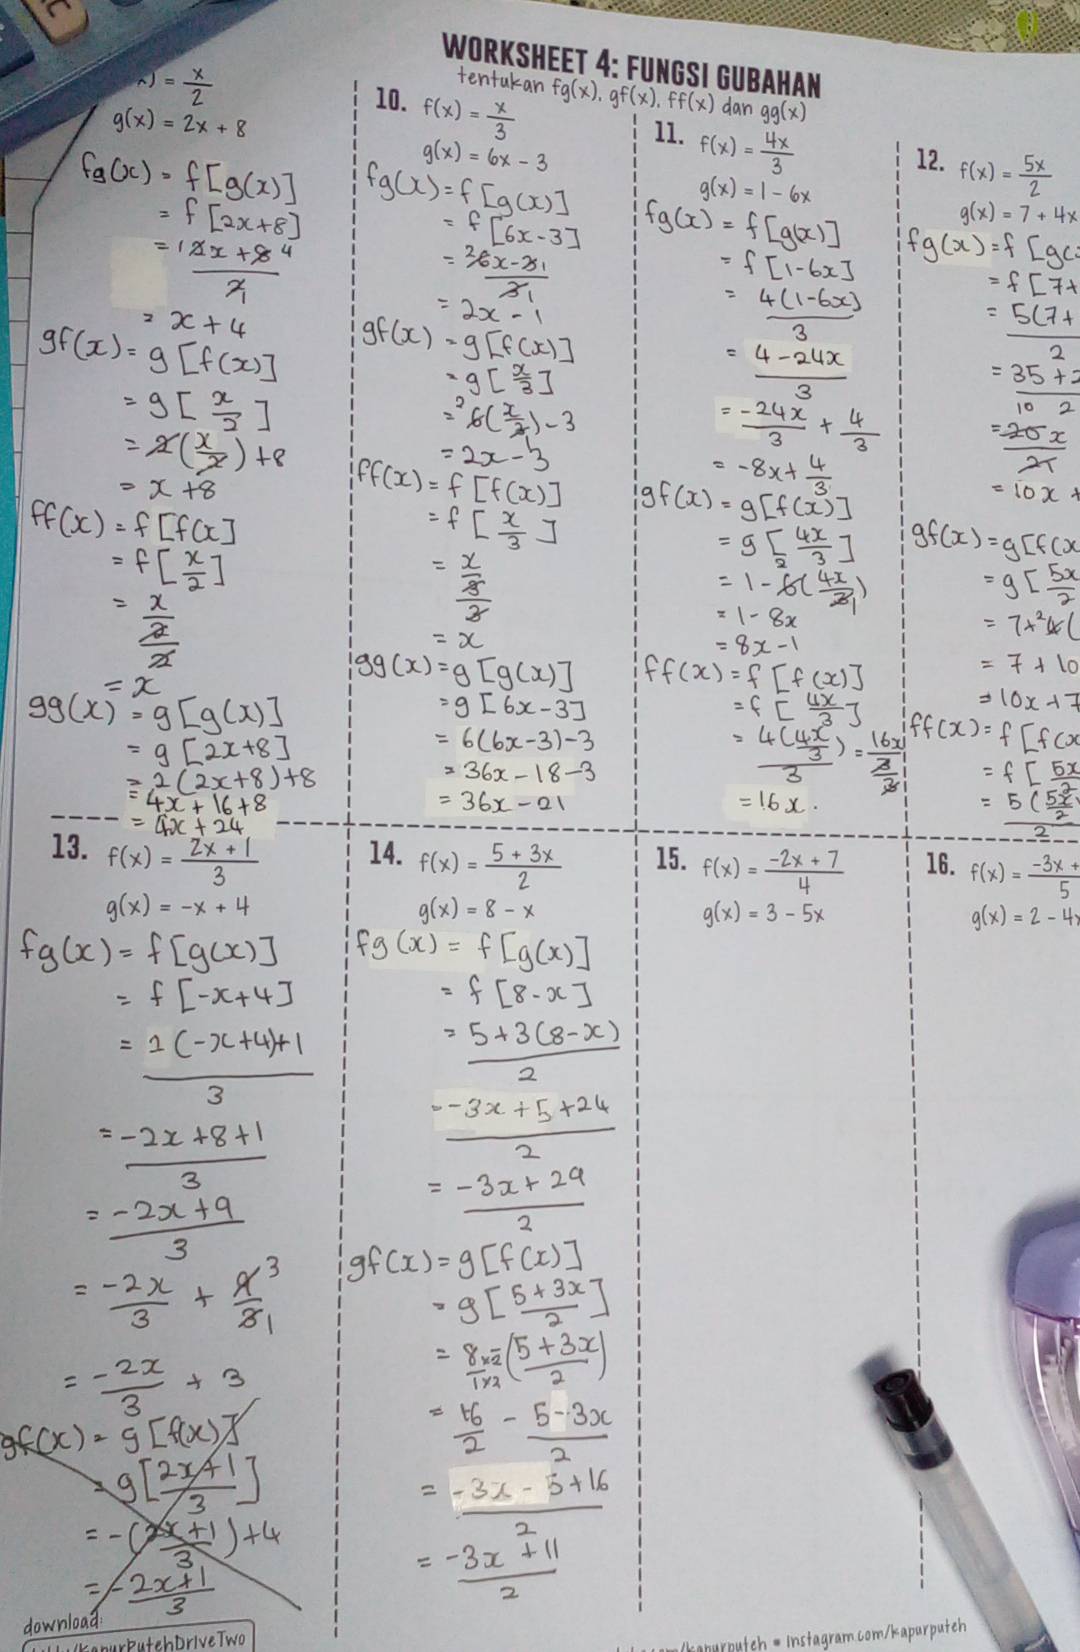 WORKSHEET 4: FUNGSI GUBAHAN
tentukan fg(x), gf(x), ff(x) dan gg(x)
) = x/2
g(x) = 2x + 8
fg(x) = f[g(x)]
= f[2x+8]
= 2x + 8 / 2
= x + 4
gf(x) = g[f(x)]
= g[x/2]
= 2(x/2) + 8
= x + 8
ff(x) = f[f(x]
= f[x/2]
= x/2 / 2
= x
gg(x) = g[g(x)]
= g[2x+8]
= 2(2x+8)+8
= 4x + 16 + 8
= 4x + 24
10. f(x) = x/3
g(x) = 6x - 3
fg(x) = f[g(x)]
= f[6x-3]
= 6x - 3 / 3
= 2x - 1
gf(x) = g[f(x)]
= g[x/3]
= 6(x/3) - 3
= 2x - 3
ff(x) = f[f(x)]
= f[x/3]
= x/3 / 3
= x
gg(x) = g[g(x)]
= g[6x-3]
= 6(6x-3)-3
= 36x - 18 - 3
= 36x - 21
11. f(x) = 4x/3
g(x) = 1 - 6x
fg(x) = f[g(x)]
= f[1-6x]
= 4(1-6x) / 3
= 4 - 24x / 3
= -24x/3 + 4/3
= -8x + 4/3
gf(x) = g[f(x)]
= g[4x/3]
= 1 - 6(4x/3)
= 1 - 8x
= 8x - 1
ff(x) = f[f(x)]
= f[4x/3]
= 4(4x/3) / 3 = 16x/3 / 3
= 16x.
12. f(x) = 5x/2
g(x) = 7 + 4x
fg(x) = f[g(
= f[7+
= 5(7+ / 2
= 35 + / 2
= 10x +
gf(x) = g[f(x
= g[5x/2
= 7 + 4(
= 7 + 10
= 10x + 7
ff(x) = f[f(x
= f[5x/2
= 5(5x/2 / 2
13. f(x) = 2x + 1 / 3
g(x) = -x + 4
fg(x) = f[g(x)]
= f[-x+4]
= 2(-x+4)+1 / 3
= -2x + 8 + 1 / 3
= -2x + 9 / 3
= -2x/3 + 9/3
= -2x/3 + 3
gf(x) = g[f(x)]
= g[2x+1 / 3]
= -(2x+1 / 3) + 4
= -2x+1 / 3
14. f(x) = 5 + 3x / 2
g(x) = 8 - x
fg(x) = f[g(x)]
= f[8-x]
= 5 + 3(8-x) / 2
= -3x + 5 + 24 / 2
= -3x + 29 / 2
gf(x) = g[f(x)]
= g[5 + 3x / 2]
= 8×2 / 1×2 - (5 + 3x / 2)
= 16/2 - 5 - 3x / 2
= -3x - 5 + 16 / 2
= -3x + 11 / 2
15. f(x) = -2x + 7 / 4
g(x) = 3 - 5x
16. f(x) = -3x + / 5
g(x) = 2 - 4x
download:
PutehDriveTwo
/kapurputeh • Instagram.com/kapurputeh